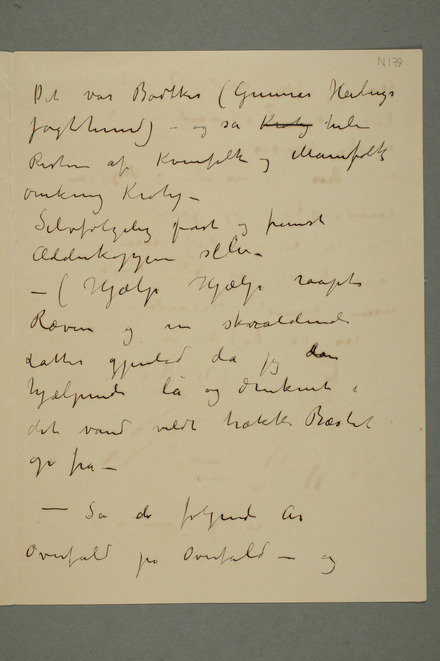 N 179
Det var Bødtker (Gunnar Heibergs
Jagthund) – og så Krohg hele
Resten af Kvinfolk og Mannfolk
omkring Krohg –
Selvfølgelig først og fremst
Ædderkoppen selv –
– ( Hjælp Hjælp raapte
Ræven og en skraldende
Latter gjenlød da jeg den
hjælpende lå og druknet i
det vand vildt trække Bæstet
op fra –
– Så de følgende År
Overfald på Overfald – og